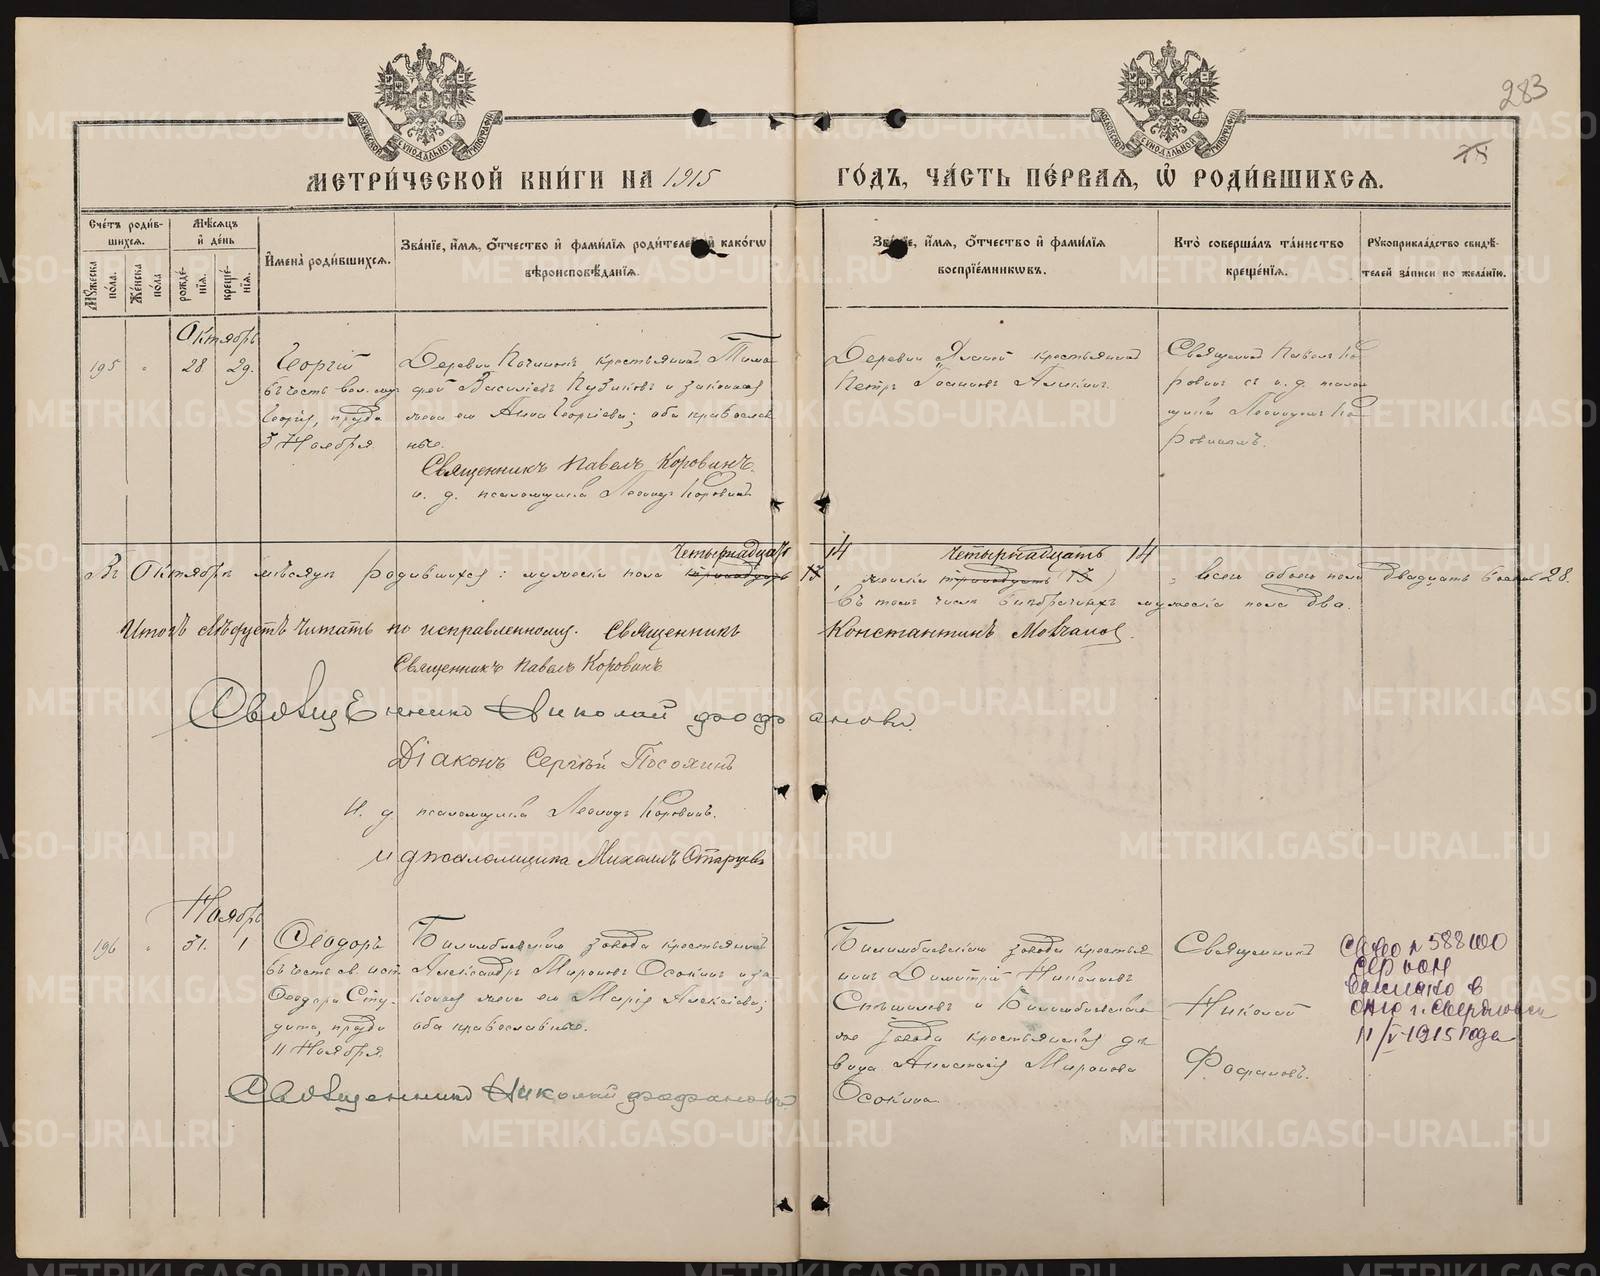 283
78
МОСКОВСКОЙ СѴНОДАЛЬНОЙ ТИПОГРАФІИ
МОСКОВСКОЙ СѴНОДАЛЬНОЙ ТИПОГРАФІИ
МЕТРИ́ЧЕСКОЙ КНИ́ГИ НА 1915 ГО́ДЪ, ЧА́СТЬ ПЕ́РВАЯ, Ѡ҆ РОДИ́ВШИХСЯ.
Сче́тъ роди́в-
шихся.
Мꙋжеска по́ла.
Же́нска по́ла
Мѣ́сяцъ
и҆ де́нь
рожде́-
нїя.
креще́-
нїя.
И҆мена̀ роди́вшихся.
Зва́нїе, и҆́мя, ѻ҆́тчество и҆ фами́лїя роди́телей, и҆ како́гѡ
вѣроисповѣ́данїя.
Зва́нїе, и҆́мя, ѻ҆́тчество и҆ фами́лїя
воспрїе́мникѡвъ.
Кто̀ соверша́лъ та́инство
креще́нїя.
Рꙋкоприкла́дство свидѣ́-
телей за́писи по жела́нїю.
Октябрь
195 " 28 29.
Георгій
въ честь вел. муч.
Георгія, празд.
3 Ноября
Деревни Починокъ крестьянинъ Тимо-
фей Васильевъ Пузиковъ и законная
жена его Анна Георгіева; оба православ-
ные.
Священникъ Павелъ Коровинъ.
и. д. псаломщика Леонидъ Коровинъ
Деревни крестьянинъ
Петръ Аликинъ.
Священникъ Павелъ Ко-
ровинъ съ и. д. псалом-
щика Леонидомъ Ко-
ровинымъ.
четырнадцать 14 четырнадцать 14
Въ Октябрѣ мѣсяцѣ родившихся: мужеска пола тринадцать 13, женска тринадцать 13, всего обоего пола двадцать восемь 28.
Въ томъ числѣ внѣбрачныхъ мужеска пола два.
Итогъ слѣдуетъ читать по исправленному. Священникъ Константинъ Мовчановъ.
Священникъ Павелъ Коровинъ
Священникъ Николай Фофановъ.
Діаконъ Сергѣй Посохинъ
И. д. псаломщика Леонидъ Коровинъ.
и д псаломщика Михаилъ Старцевъ
Ноябрь
196 " 31. 1
Ѳеодоръ
въ честь св. исп.
Ѳеодора Сту-
дита, празд.
11 Ноября.
Билимбаевскаго завода крестьянинъ
Александръ Мироновъ Осокинъ и за-
конная жена его Марія Алексіева;
оба православные.
Священникъ Николай Фофановъ
Билимбаевскаго завода крестья-
нинъ Димитрій Николаевъ
Спѣшиловъ и Билимбаевска-
го завода крестьянская дѣ-
вица Анастасія Миронова
Осокина.
Священникъ
Николай
Фофановъ.
Св-во № 588100
выслано в
г. Свердловск
11/V-1915 года
METRIKI.GASO-URAL.RU